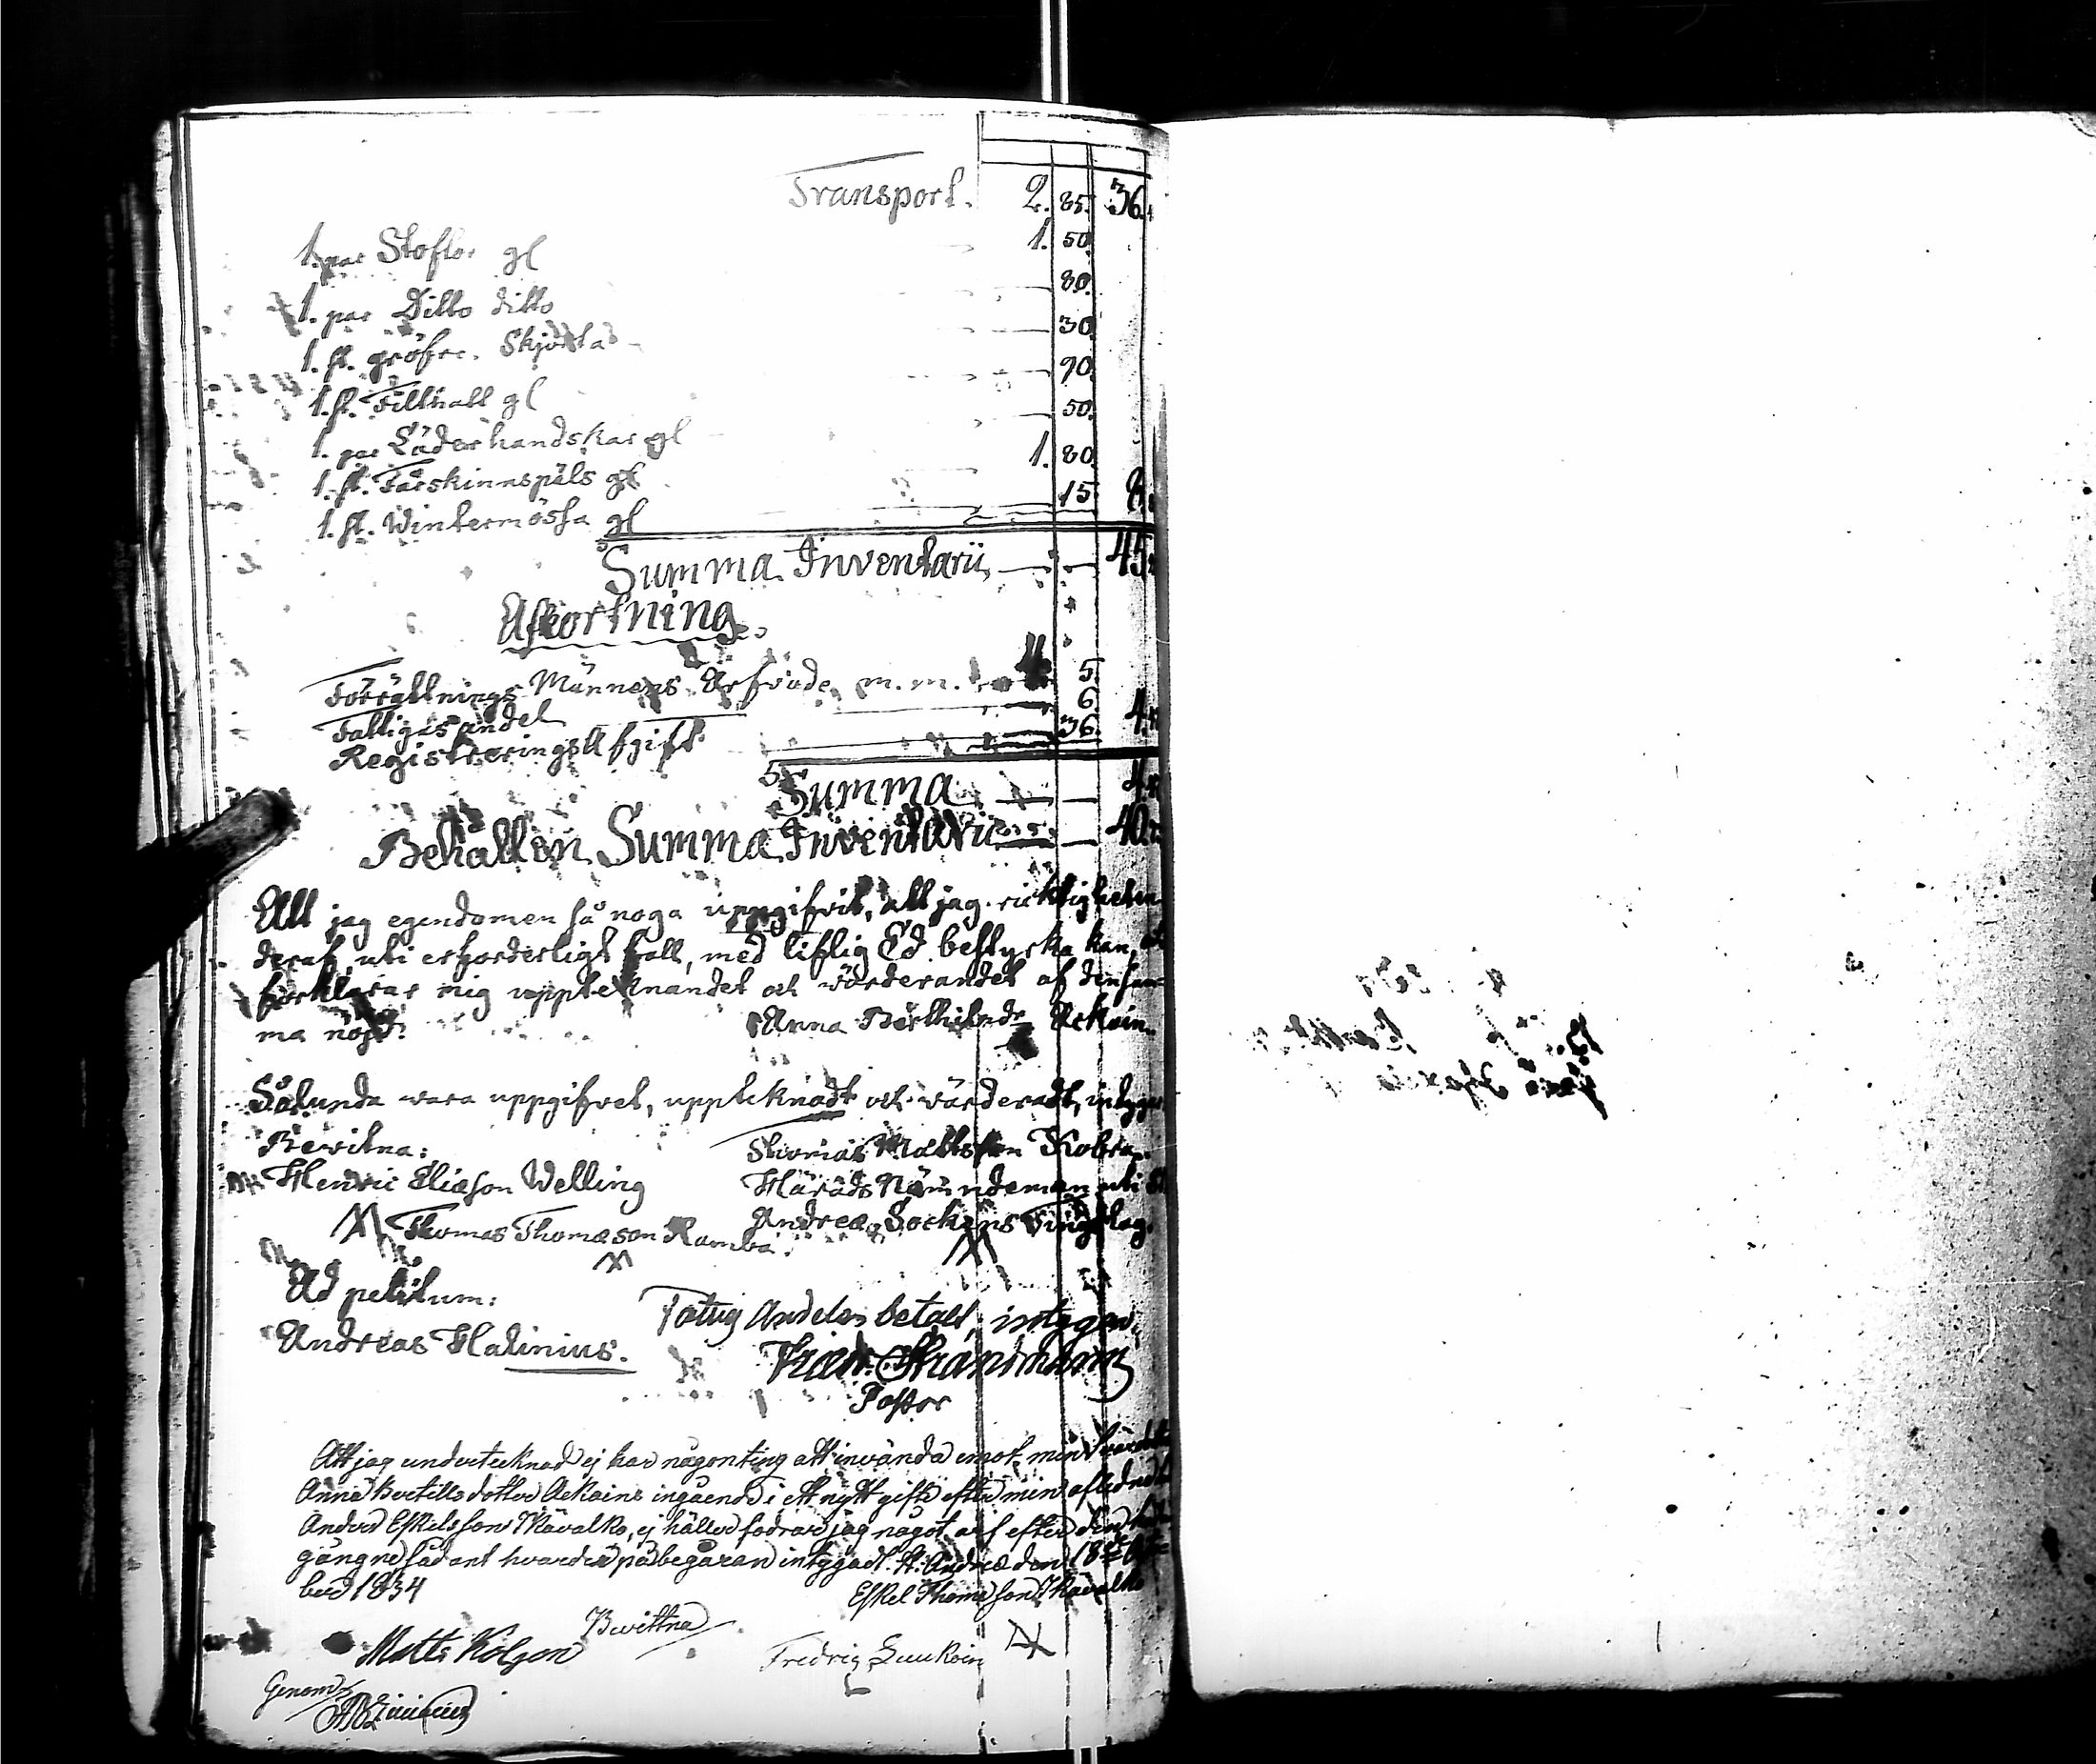 Transport. 2. 85. 36.
1. par Stoflor gl 1. 50
1. par Ditto ditto 80.
1. st. gröfre. Skjorta 30
1. st. Filthatt gl 90
1. par Läderhandskar gl 50.
1. st. Fårskinnspäls gl 1. 80.
1. st. Wintermössa gl 15 8.
Summa Inventarii 45
Afkortning.
Förrättnings Männens Arfvode, m. m. 5.
Fattiges andel 6.
Registrerings Afgift 36. 4
Summa 4
Behållen Summa Inventarii 40
Att jag egendomen så noga uppgifvit, att jag ricktigheten
deraf, uti erforderligt fall, med liflig Ed bestyrka kan,
förklarar mig upptecknandet och värderandet af densam-
ma nögd. Anna Bertilsdr Ackain.
Sålunda vara uppgifvet, upptecknadt och värderadt, intyga
Bevitna: Thomas Mattsson Kobra.
Henric Eliæson Welling Härads Nämndeman uti St
Thomas Thomæson Ramba. Andreæ Sockens Tingslag.
Ad petitum: Fattig Andelen betalt, intygar,
Andreas Halinius. Fredr. Strahlmann
Pastor
Att jag undertecknad ej har någonting att invända emot min
Anna Bertills dotter Ackains ingående i ett nytt gifte efter min aflidne
Anders Eskelsson Kävalko, ej häller fodrar jag något arf efter den
gångne sådant hvarder på begäran intygadt. St. Andreæ den 18de
ber 1834 Eskel Thomasson Kävalko
Bevittna
Matts Koljon Fredrig Luukoin
Genom